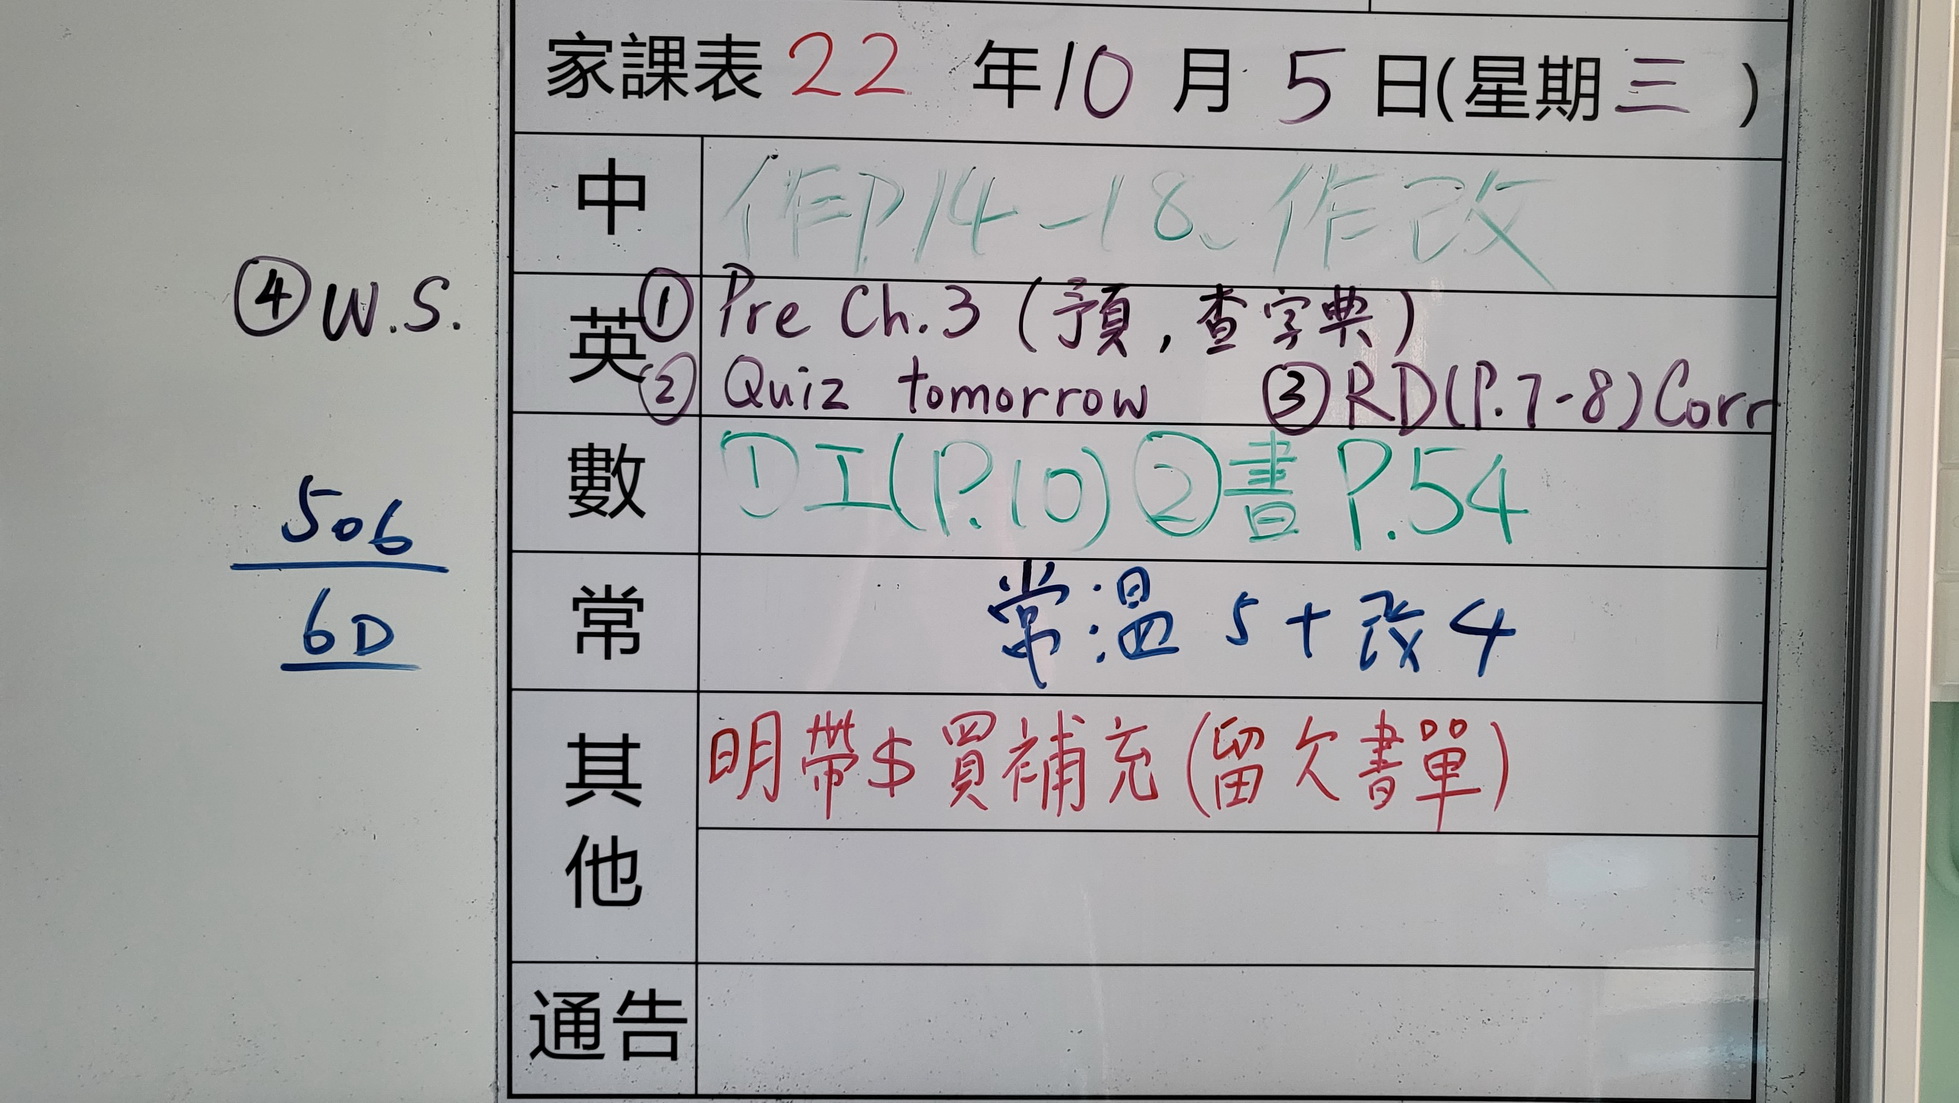 家課表 22 年 10 月 5 日(星期三)
中 作P.14-18、作改
英 ① Pre Ch.3 (預,查字典)
② Quiz tomorrow ③ RD(P.7-8) Corr
④ W.S.
數 ① 工(P.10) ② 書 P.54
506
6D
常 常:温 5+改4
其他 明帶$買補充(留欠書單)
通告